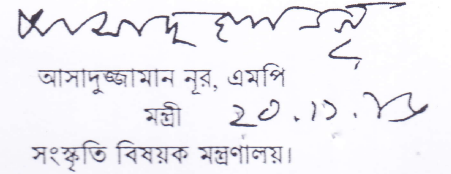 আসাদুজ্জামান নূর, এমপি
মন্ত্রী
সংস্কৃতি বিষয়ক মন্ত্রণালয়।